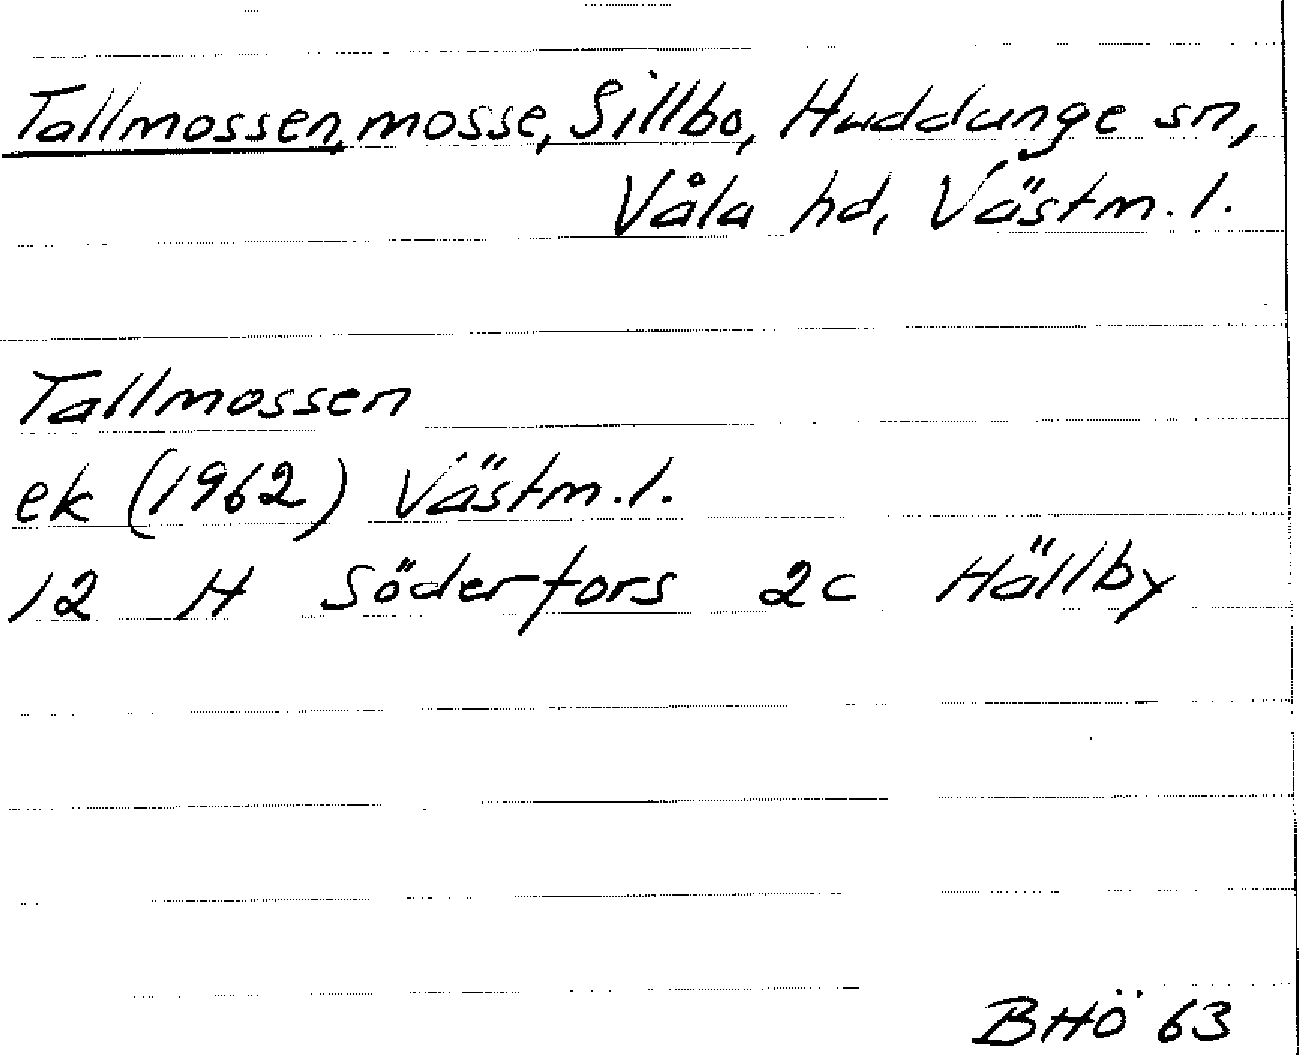 Tallmossen, mosse, Sillbo, Huddunge sn,
Våla hd, Västm. l.
Tallmossen
ek (1962) Västm. l.
12 H Söderfors 2c Hällby
BHÖ 63